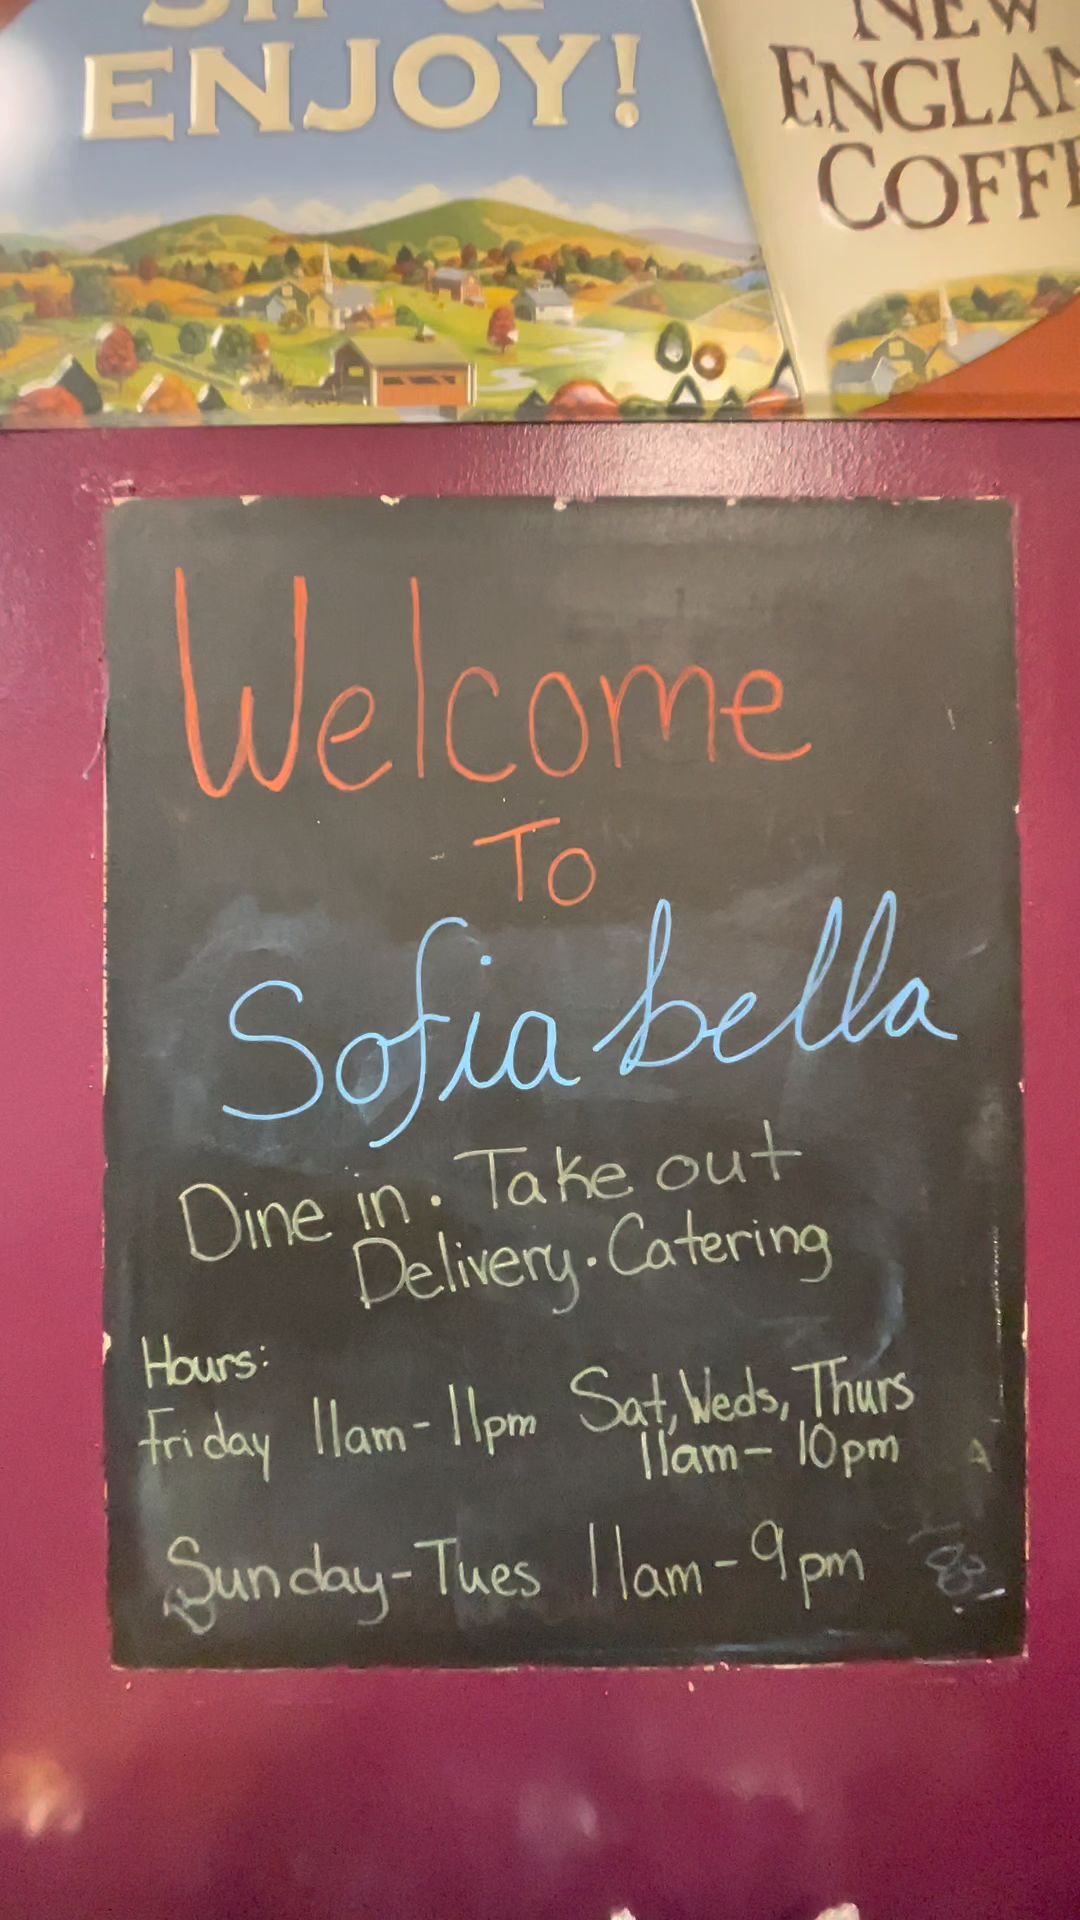 ENJOY!
NEW
ENGLAN
COFFE
Welcome
To
Sofia bella
Dine in · Take out
Delivery · Catering
Hours:
Friday 11am - 11pm
Sat, Weds, Thurs
11am - 10pm
Sunday - Tues 11am - 9pm